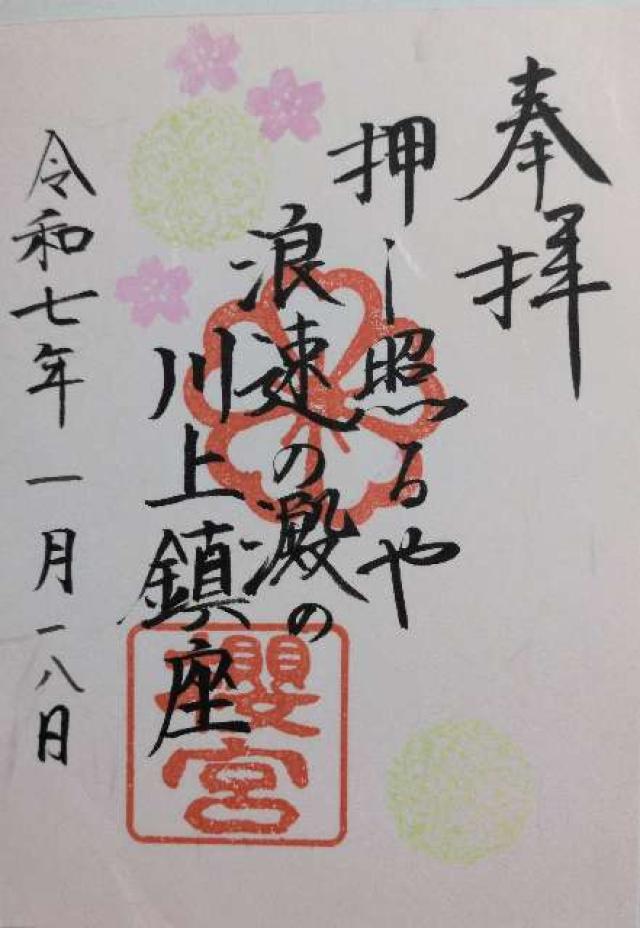 奉拝
押し照るや
浪速の澱の
川上鎮座
櫻宮
令和七年一月一八日